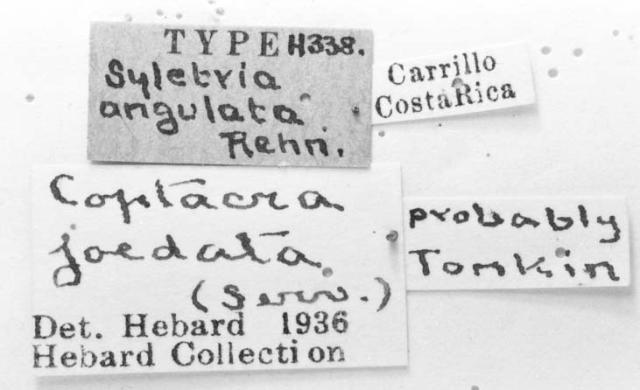 TYPE H338.
Syletria
angulata
Rehn.
Carrillo
CostaRica
Coptacra
foedata
(Serv.)
Det. Hebard 1936
Hebard Collection
probably
Tonkin